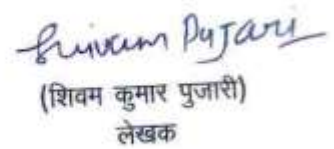 Shivam Pujari
(शिवम कुमार पुजारी)
लेखक